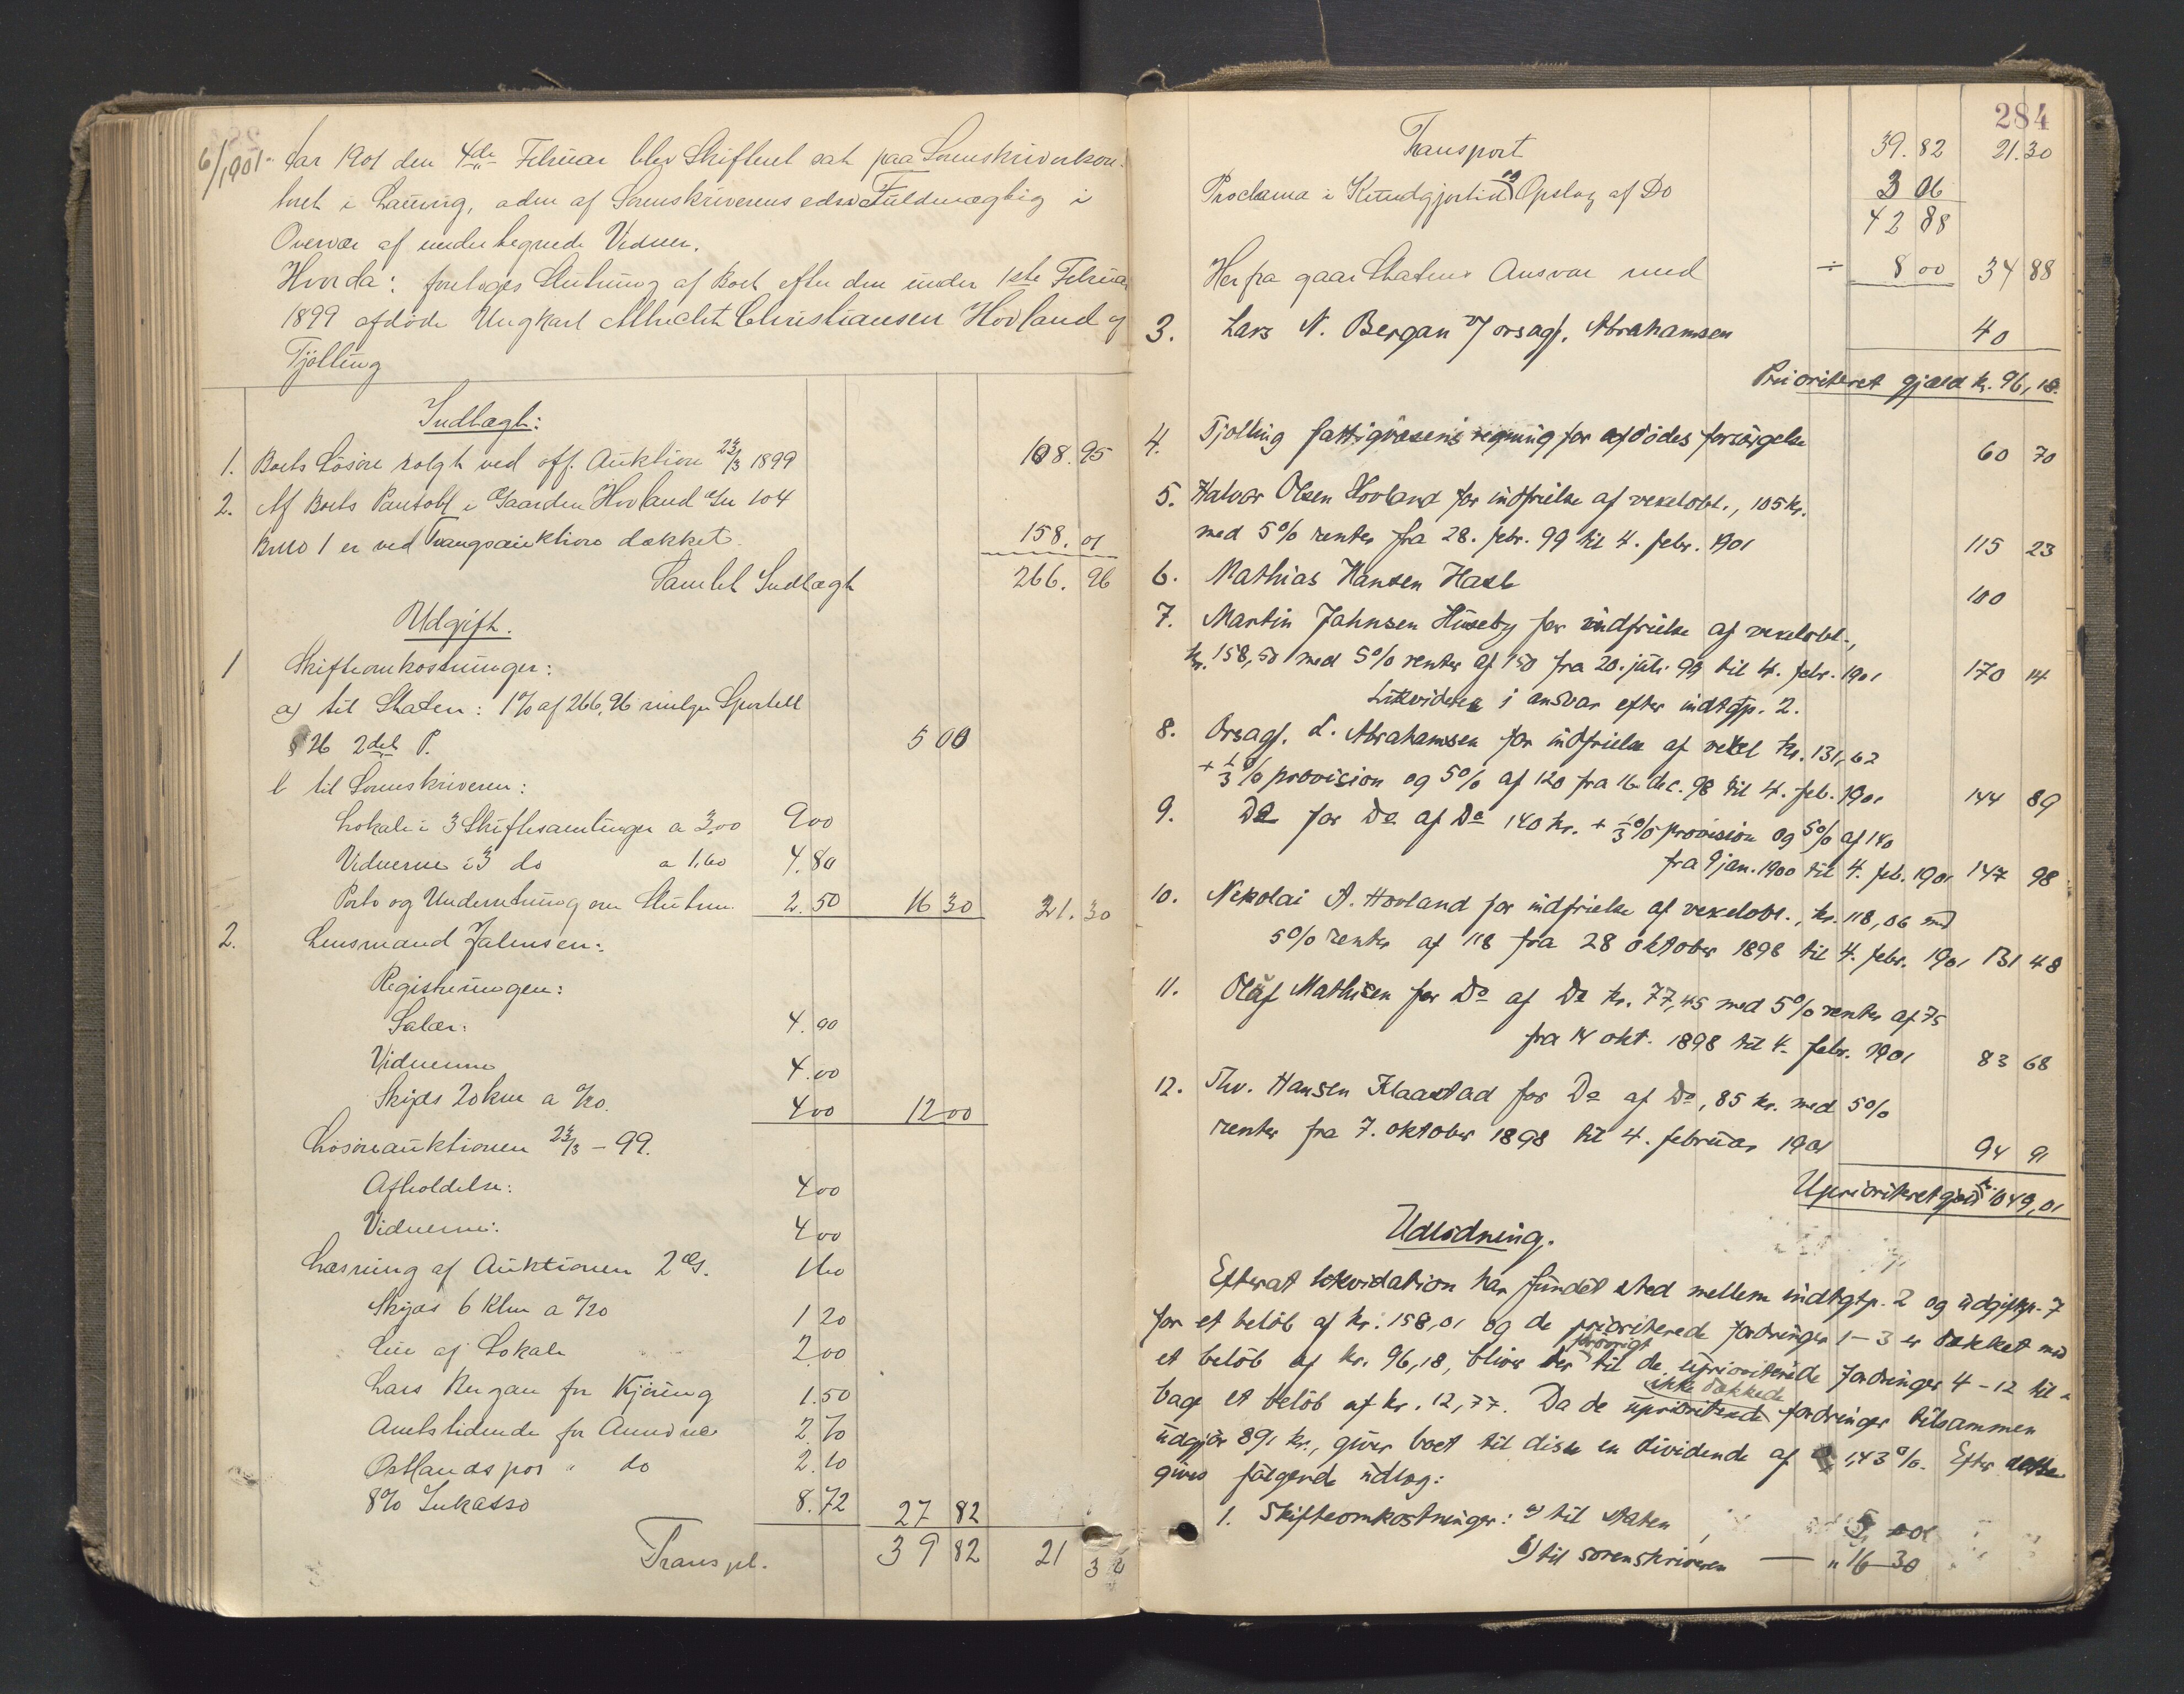 6/1901.
Aar 1901 den 4de Februar blev Skifteret sat paa Sorenskriverkon-
toret i Laurvig, aden af Sorenskriverens edsv. Fuldmægtig i
Overvær af undertegnede Vidner.
Hvorda: foretoges Slutning af Boet efter den under 1ste Februar
1899 afdøde Ungkarl Albrecht Christiansen Hovland af
Tjølling
Indtægt:
1. Boets Løsøre solgt ved off. Auktion 23/3 1899 108.95
2. Af Boets Pantobl i Gaarden Hovland Gn 104
Bruno 1 er ved Tvangsauktion dækket 158.01
Samlet Indtægt 266.96
Udgift.
1 Skifteomkostninger:
a) til Staten: 1% af 266,96 ifølge Sportell
§ 26 2det P. 5 00
b til Sorenskriveren:
Lokale i 3 Skiftesamlinger a 3.00 9 00
Vidnerne i 3 do a 1.60 4.80
Porto og Underretning om Slutn. 2.50 16 30 21.30
2. Lensmand Jahnsen:
Registreringen:
Salær: 4.00
Vidnerne 4.00
Skyds 20 km a 0/20. 4 00 12 00
Løsøreauktionen 23/3 - 99.
Afholdelse: 4 00
Vidnerne: 4 00
Læsning af Auktionen 2 G. 1 60
Skyds 6 Klm a 0/20 1 20
Leie af Lokale 2.00
Lars Bergan for Kjøring 1.50
Amtstidende for Annonce 2.70
Østlandspos " do 2.10
8% Inkasso 8.72 27 82
Transpt. 39 82 21 30
284
Transport 39.82 21.30
Proclama i Kundgjørtid og Opslag af Do 3 06
42 88
Herfra gaar Statens Ansvar med ÷ 8 00 34 88
3. Lars N. Bergan v/ orsagf. Abrahamsen 40
Prioriteret gjæld kr. 96,18.
4. Tjølling fattigvæsens regning for afdødes forsørgelse 60 70
5. Halvor Olsen Hovland for indfrielse af vexelobl., 105 kr.
med 5% renter fra 28. febr. 99 til 4. febr. 1901 115 23
6. Mathias Hansen Hasl 100
7. Martin Jahnsen Huseby for indfrielse af vexelobl.,
kr. 158,50 med 5% renter af 150 fra 20. juli 99 til 4. febr. 1901 170 14
Likvideres i ansvar efter indtgtp. 2.
8. Orsagf. L. Abrahamsen for indfrielse af vexel kr. 131,62
+ 1/3% provision og 5% af 120 fra 16 dec. 98 til 4. feb. 1901 144 89
9. Do for Do af Do 140 kr. + 1/3% provision og 5% af 140
fra 9 jan. 1900 til 4. feb. 1901 147 98
10. Nikolai A. Hovland for indfrielse af vexelobl., kr. 118,06 med
5% renter af 118 fra 28 oktober 1898 til 4. febr. 1901 131 48
11. Olaf Mathisen for Do af Do kr. 77,45 med 5% renter af 75
fra 14 okt. 1898 til 4. febr. 1901 83 68
12. Thv. Hansen Klaastad for Do af Do, 85 kr. med 5%
renter fra 7. oktober 1898 til 4. februar 1901 94 91
Uprioriteret gjæld kr. 1049,01
Udlodning.
Efterat likvidation har fundet sted mellem indtgtp. 2 og udgiftsp. 7
for et beløb af kr. 158,01 og de prioriterede fordringer 1–3 er dækket med
et beløb af kr. 96,18, bliver der forøvrigt til de uprioriterede fordringer 4–12 til-
bage et beløb af kr. 12,77. Da de uprioriterede ikke dækkede fordringer tilsammen
udgjør 891 kr., giver boet til disse en dividende af 1,43%. Efter dette
gives følgende udlæg:
1. Skifteomkostninger: a) til staten 5 00
b) til sorenskriveren — " 16 30